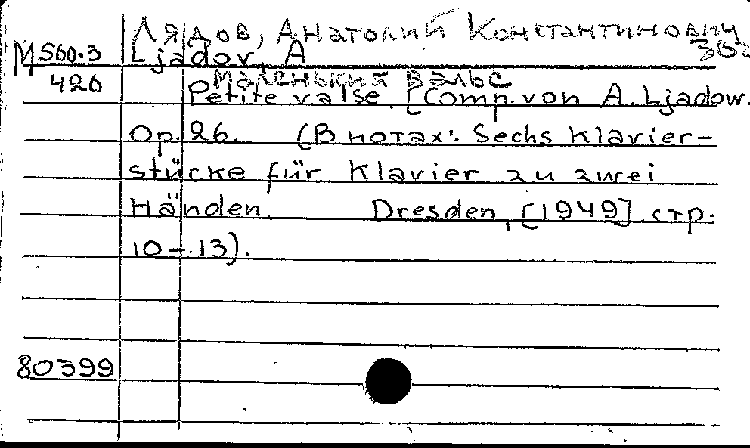 Лядов, Анатолий Константинович
М 560.3 Ljadov, A
426 Маленький вальс
Petite valse. [Comp. von A. Ljadow.
Op. 26. (В нотах: Sechs Klavier-
stücke für Klavier zu zwei
Händen. Dresden, [1949] стр.
10-13).
80399